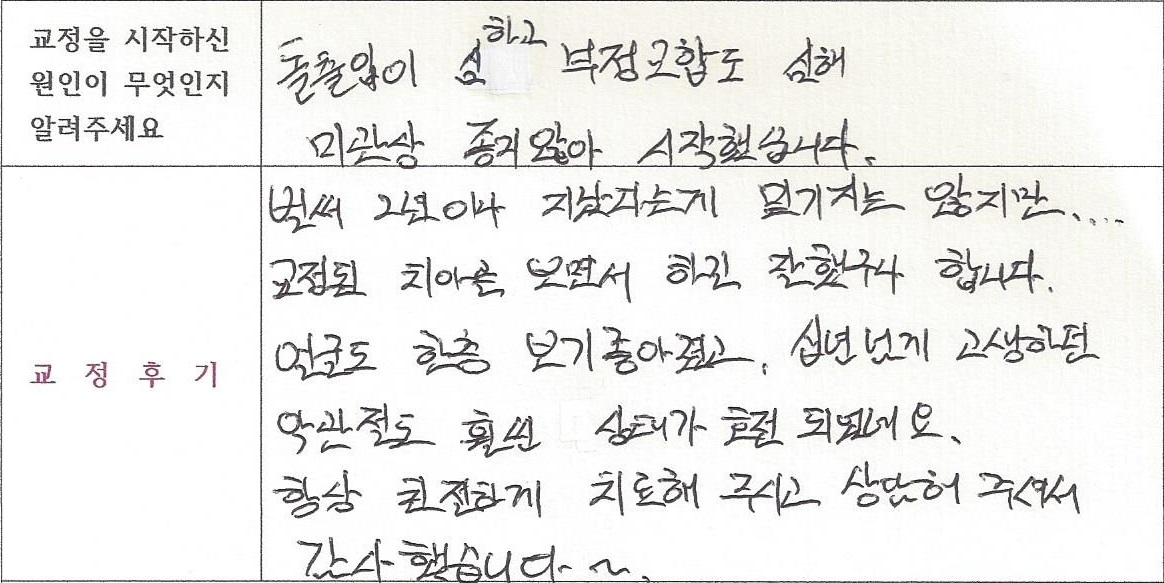 교정을 시작하신
원인이 무엇인지
알려주세요
돌출입이 심하고 부정교합도 심해
미관상 좋지않아 시작했습니다.
교 정 후 기
벌써 2년이나 지났다는게 믿기지는 않지만....
교정된 치아를 보면서 하긴 잘했구나 합니다.
얼굴도 한층 보기좋아졌고, 십년넘게 고생하던
악관절도 훨씬 상태가 호전 되었네요.
항상 친절하게 치료해 주시고 상담해 주셔서
감사했습니다~.